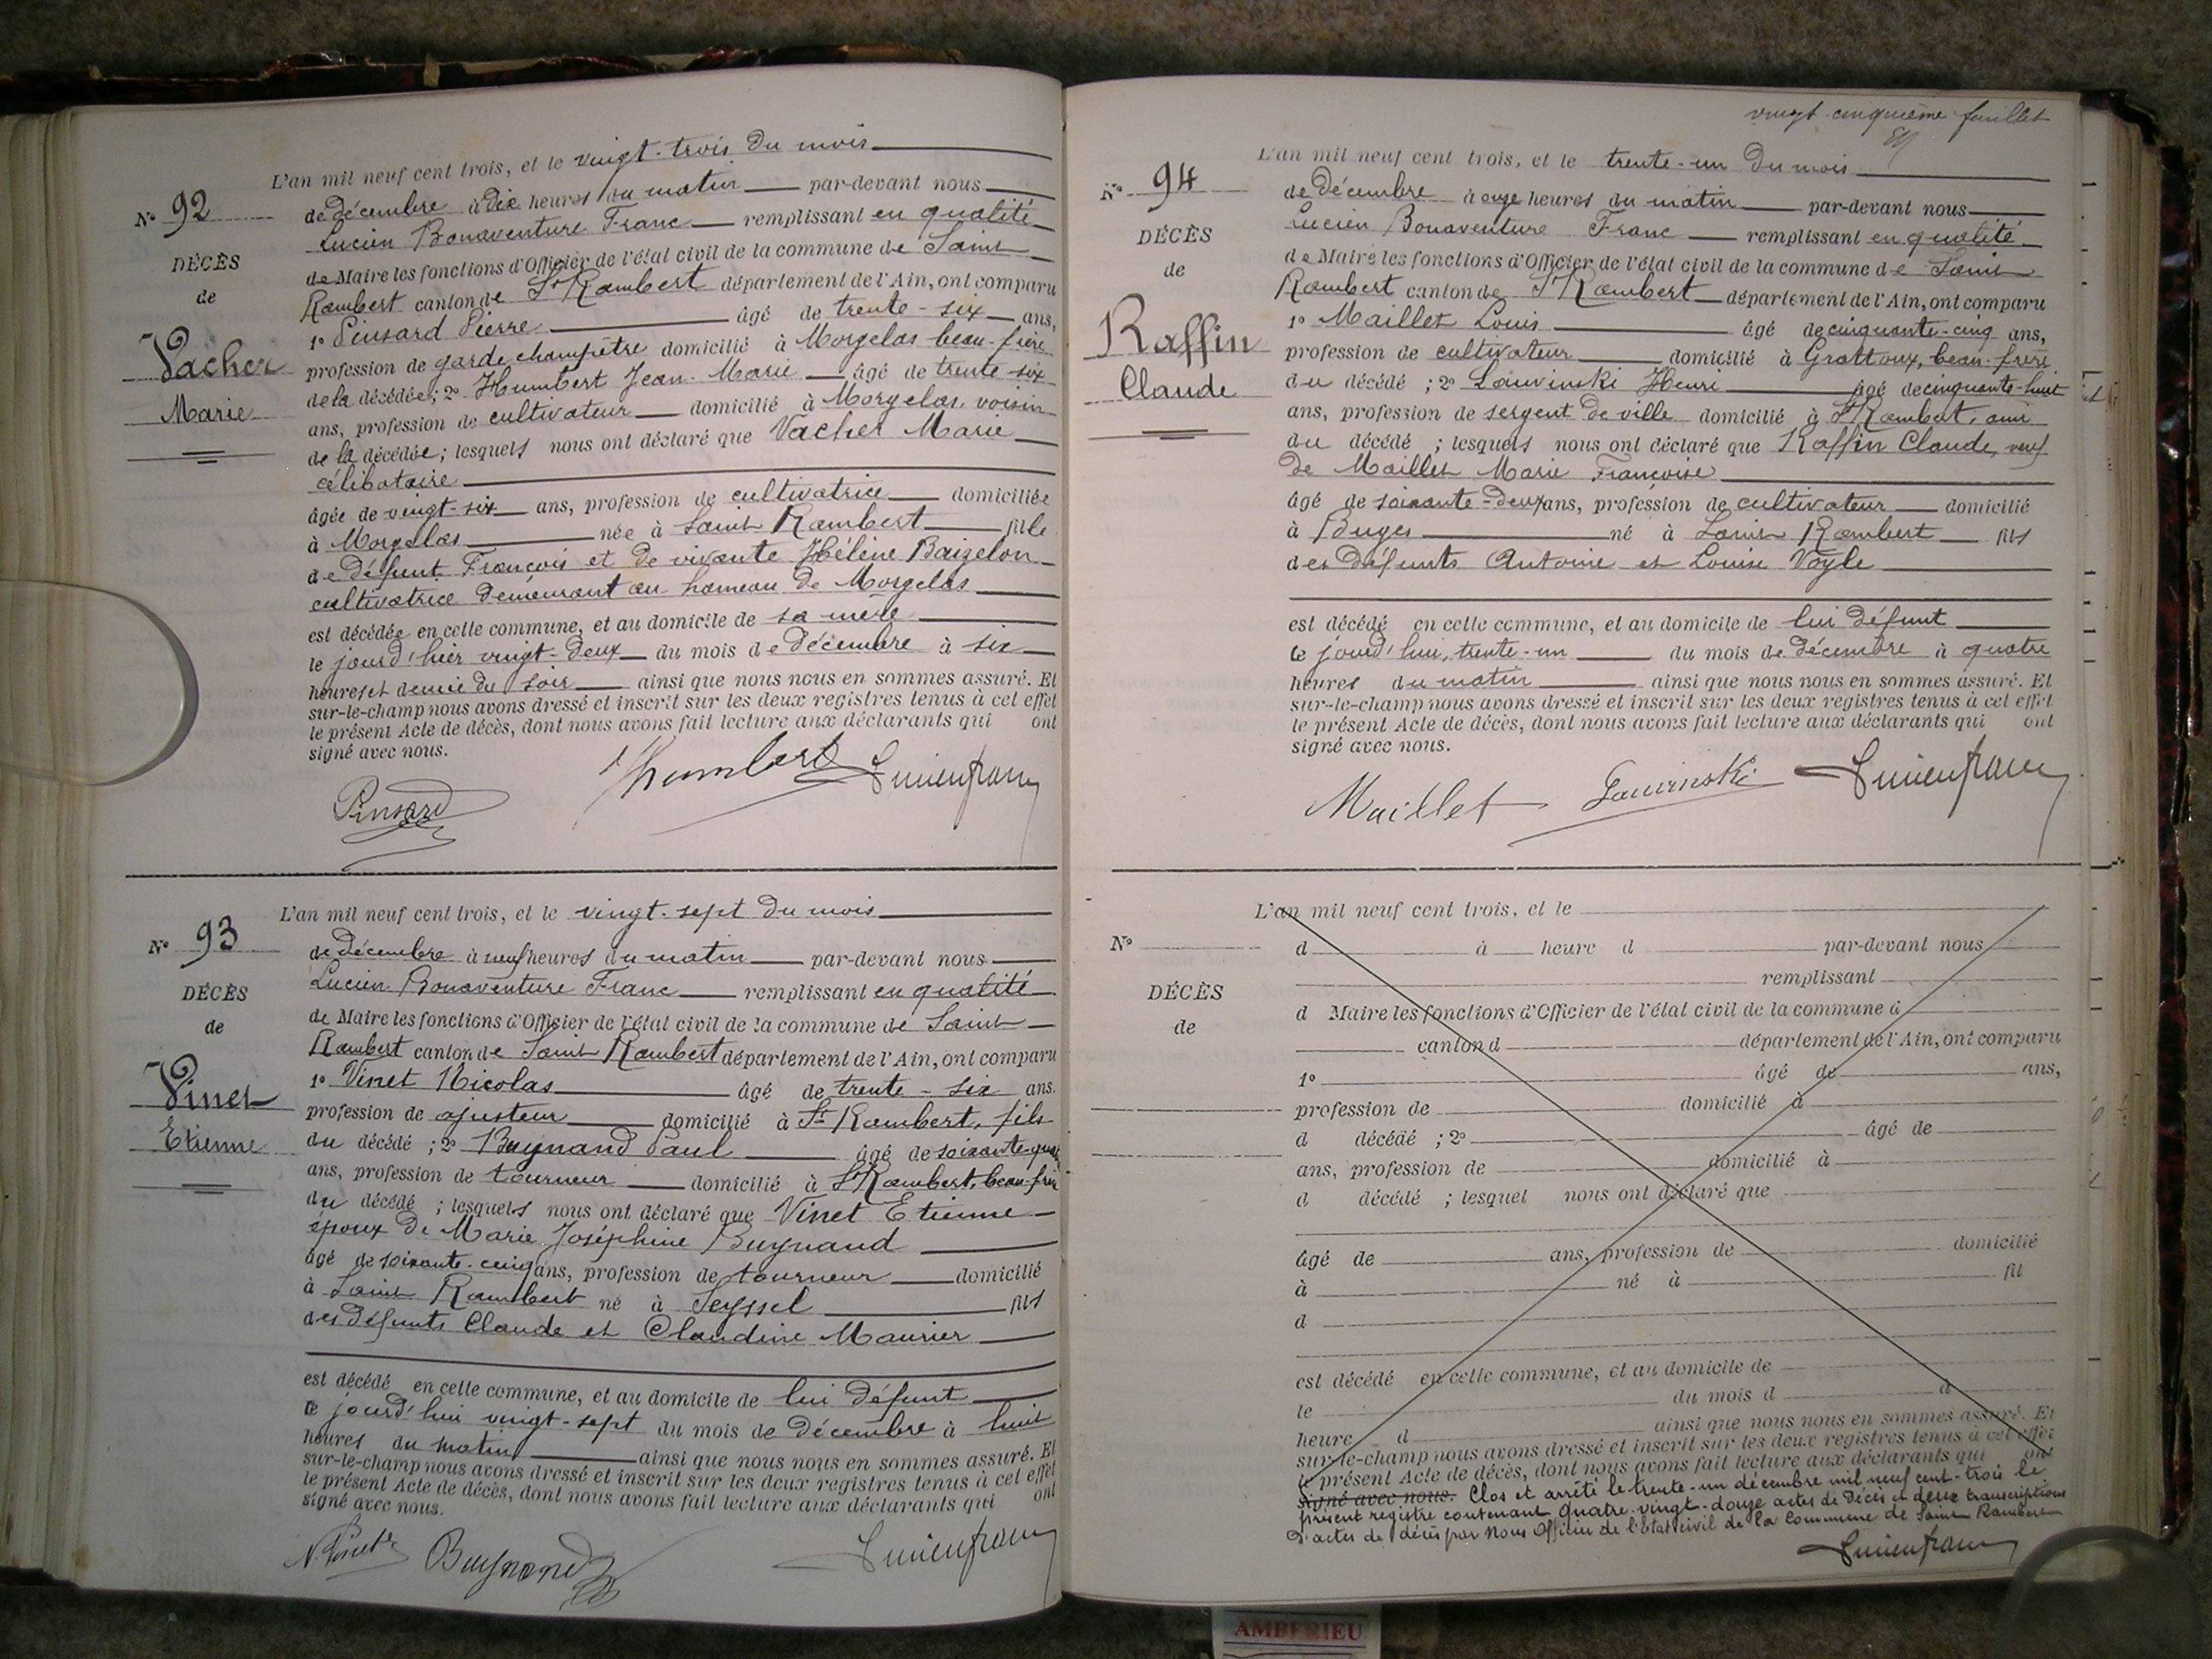 L'an mil neuf cent trois, et le vingt-trois du mois
N° 92
de décembre à dix heures du matin par-devant nous
Lucien Bonaventure Franc remplissant en qualité
DÉCÈS
de Maire les fonctions d'Officier de l'état civil de la commune de Saint
de
Rambert canton de St Rambert département de l'Ain, ont comparu
Vacher
1° Pensard Pierre âgé de trente-six ans,
profession de garde champêtre domicilié à Morgelas beau-frère
Marie
de la décédée; 2° Humbert Jean-Marie âgé de trente-six
ans, profession de cultivateur domicilié à Morgelas, voisin
de la décédée; lesquels nous ont déclaré que Vacher Marie
célibataire
âgée de vingt-six ans, profession de cultivatrice domiciliée
à Morgelas née à Saint Rambert fille
de défunt François et de vivante Hélène Baizelon
cultivatrice demeurant au hameau de Morgelas
est décédée en cette commune, et au domicile de sa mère
le jourd'hier vingt-deux du mois de décembre à six
heures et demie du soir ainsi que nous nous en sommes assuré. Et
sur-le-champ nous avons dressé et inscrit sur les deux registres tenus à cet effet
le présent Acte de décès, dont nous avons fait lecture aux déclarants qui ont
signé avec nous.
Pensard Jhumbert Lucien franc
L'an mil neuf cent trois, et le vingt-sept du mois
N° 93
de décembre à neuf heures du matin par-devant nous
Lucien Bonaventure Franc remplissant en qualité
DÉCÈS
de Maire les fonctions d'Officier de l'état civil de la commune de Saint
de
Rambert canton de Saint Rambert département de l'Ain, ont comparu
Vinet
1° Vinet Nicolas âgé de trente-six ans.
profession de ajusteur domicilié à St Rambert, fils
Etienne
du décédé; 2° Buynand Paul âgé de soixante-
ans, profession de tourneur domicilié à St Rambert, beau-frère
du décédé; lesquels nous ont déclaré que Vinet Etienne
époux de Marie Joséphine Buynand
âgé de soixante-cinq ans, profession de tourneur domicilié
à Saint Rambert né à Seyssel fils
des défunts Claude et Claudine Maurier
est décédé en cette commune, et au domicile de lui défunt
le jourd'hui vingt-sept du mois de décembre à huit
heures du matin ainsi que nous nous en sommes assuré. Et
sur-le-champ nous avons dressé et inscrit sur les deux registres tenus à cet effet
le présent Acte de décès, dont nous avons fait lecture aux déclarants qui ont
signé avec nous.
N. Vinet Buynand Lucien franc
vingt-cinquième feuillet
L'an mil neuf cent trois, et le trente-un du mois
N° 94
de décembre à onze heures du matin par-devant nous
Lucien Bonaventure Franc remplissant en qualité
DÉCÈS
de Maire les fonctions d'Officier de l'état civil de la commune de Saint
de
Rambert canton de St Rambert département de l'Ain, ont comparu
Raffin
1° Maillet Louis âgé de cinquante-cinq ans,
profession de cultivateur domicilié à Grattoux, beau-frère
Claude
du décédé; 2° Lauvinski Henri âgé de cinquante-huit
ans, profession de sergent de ville domicilié à St Rambert, ami
du décédé; lesquels nous ont déclaré que Raffin Claude, veuf
de Maillet Marie Françoise
âgé de soixante-deux ans, profession de cultivateur domicilié
à Buges né à Saint Rambert fils
des défunts Antoine et Louise Voyle
est décédé en cette commune, et au domicile de lui défunt
le jourd'hui, trente-un du mois de décembre à quatre
heures du matin ainsi que nous nous en sommes assuré. Et
sur-le-champ nous avons dressé et inscrit sur les deux registres tenus à cet effet
le présent Acte de décès, dont nous avons fait lecture aux déclarants qui ont
signé avec nous.
Maillet Lauvinski Lucien franc
L'an mil neuf cent trois, et le
N°
d à heure d par-devant nous
remplissant
DÉCÈS
d Maire les fonctions d'Officier de l'état civil de la commune d
de
canton d département de l'Ain, ont comparu
1° âgé de ans,
profession de domicilié à
d décédé; 2° âgé de
ans, profession de domicilié à
d décédé; lesquel nous ont déclaré que
âgé de ans, profession de domicilié
à né à fil
d
est décédé en cette commune, et au domicile de
le du mois d à
heure d ainsi que nous nous en sommes assuré. Et
sur-le-champ nous avons dressé et inscrit sur les deux registres tenus à cet effet
le présent Acte de décès, dont nous avons fait lecture aux déclarants qui ont
signé avec nous. Clos et arrêté le trente-un décembre mil neuf cent-trois le
présent registre contenant quatre-vingt-douze actes de décès et deux transcriptions
d'actes de décès par Nous Officier de l'Etat civil de la Commune de Saint Rambert
Lucien franc
AMBERIEU